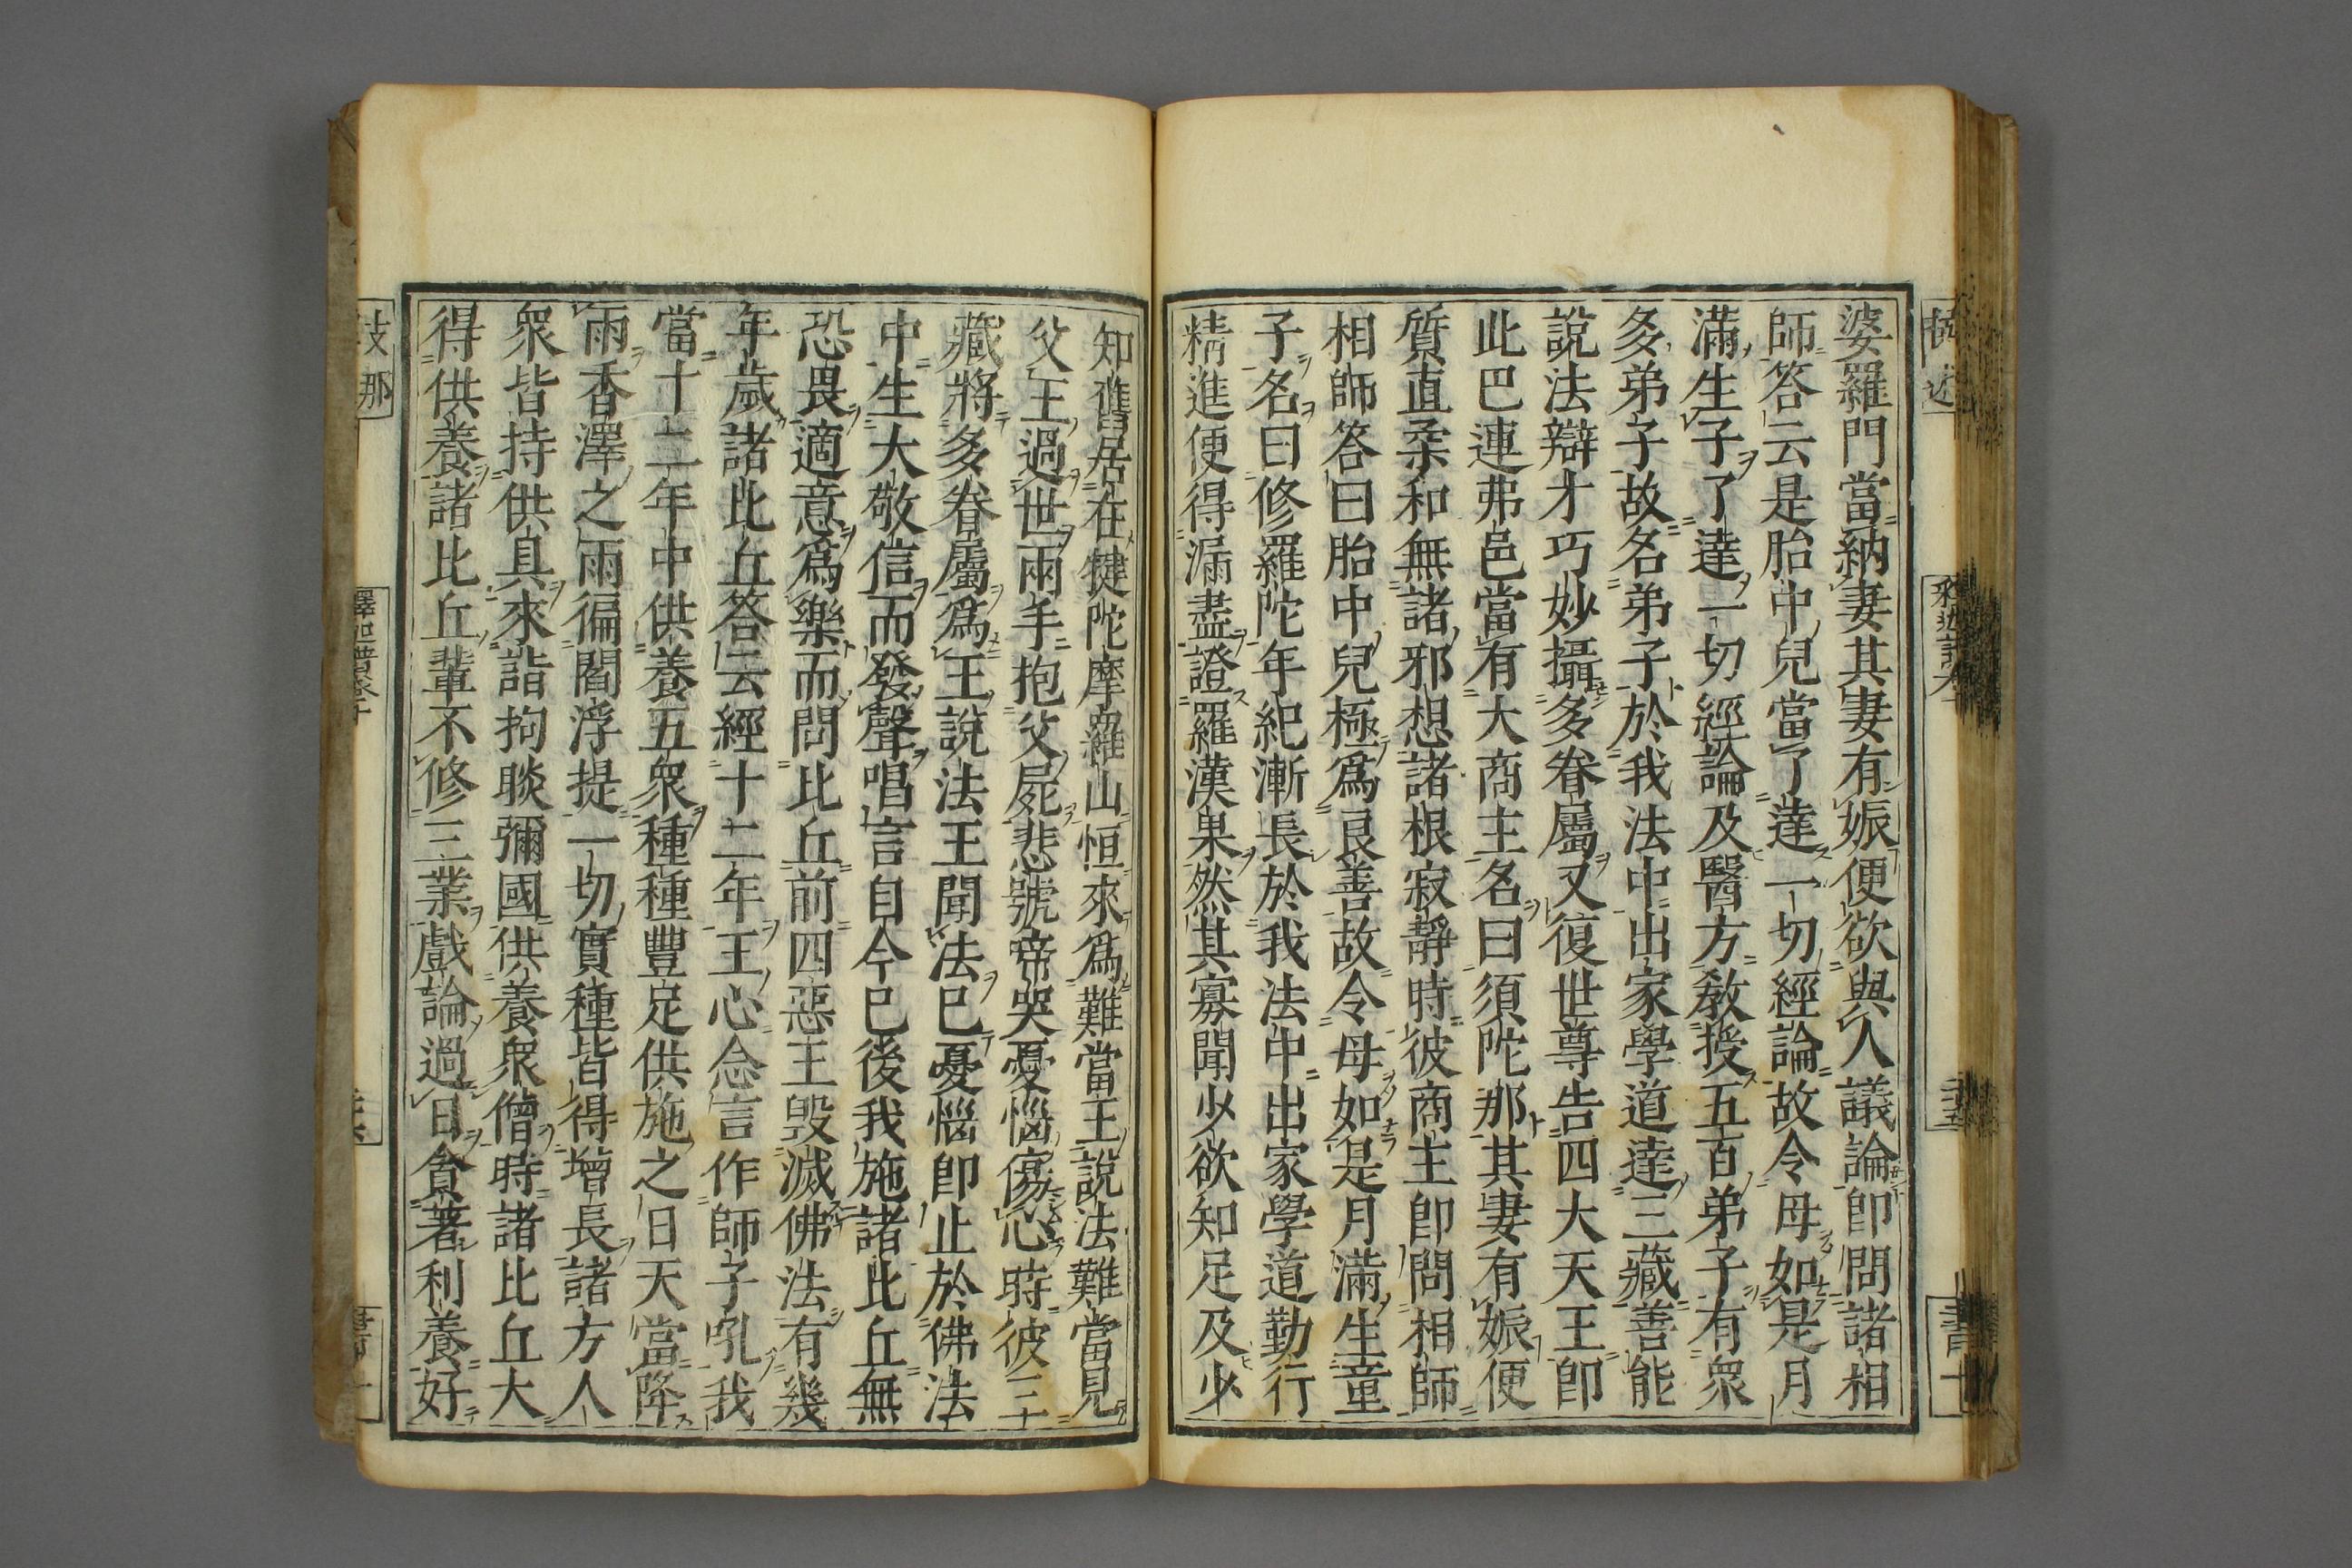 婆羅門當納妻其妻有娠便欲與人議論卽問諸相
師答云是胎中兒當了達一切經論故令母如是月
滿生子了達一切經論及醫方教授五百弟子有衆
多弟子故名弟子於我法中出家學道達三藏善能
說法辯才巧妙攝多眷屬又復世尊告四大天王卽
此巴連弗邑當有大商主名曰須陀那其妻有娠便
質直柔和無諸邪想諸根寂靜時彼商主卽問相師
相師答曰胎中兒極爲良善故令母如是月滿生童
子名曰修羅陀年紀漸長於我法中出家學道勤行
精進便得漏盡證羅漢果然其寡聞少欲知足及少
知舊居在揵陀摩羅山恒來爲難當王說法難當見
父王過世兩手抱父屍悲號啼哭憂惱傷心時彼三
藏將多眷屬爲王說法王聞法已憂惱卽止於佛法
中生大敬信而發聲唱言自今已後我施諸比丘無
恐畏適意爲樂而問比丘前四惡王毀滅佛法有幾
年歲諸比丘答云經十二年王心念言作師子吼我
當十二年中供養五衆種種豐足供施之日天當降
雨香澤之雨徧閻浮提一切實種皆得增長諸方人
衆皆持供具來詣拘睒彌國供養衆僧時諸比丘大
得供養諸比丘輩不修三業戲論過日貪著利養好